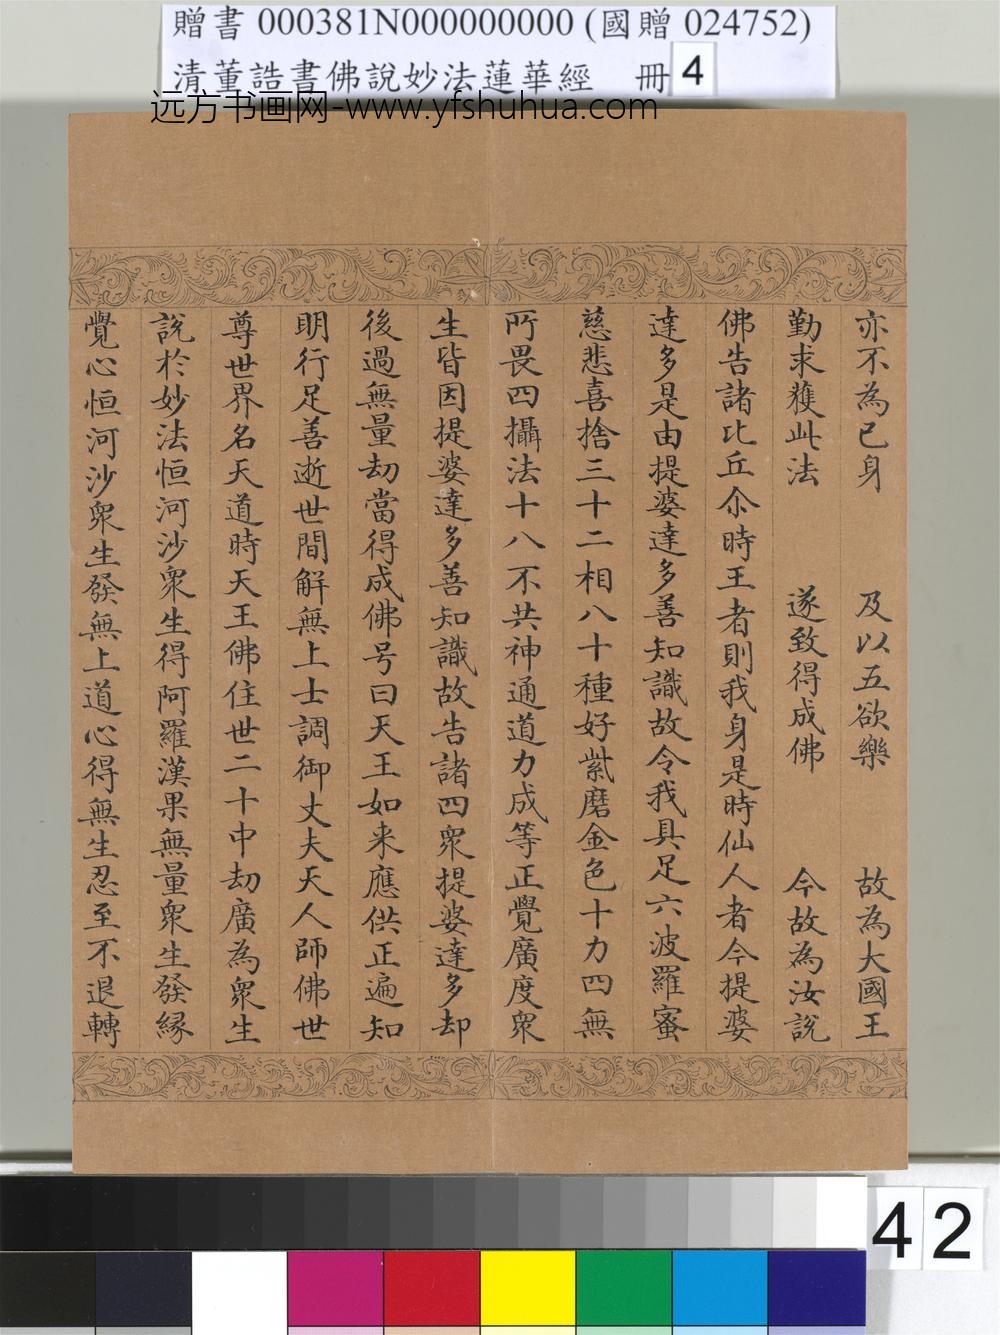 贈書 000381N000000000 (國贈 024752)
清董誥書佛說妙法蓮華經 冊 4
远方书画网-www.yfshuhua.com
亦不為己身 及以五欲樂 故為大國王
勤求獲此法 遂致得成佛 今故為汝說
佛告諸比丘尒時王者則我身是時仙人者今提婆
達多是由提婆達多善知識故令我具足六波羅蜜
慈悲喜捨三十二相八十種好紫磨金色十力四無
所畏四攝法十八不共神通道力成等正覺廣度眾
生皆因提婆達多善知識故告諸四眾提婆達多却
後過無量劫當得成佛号曰天王如来應供正遍知
明行足善逝世間解無上士調御丈夫天人師佛世
尊世界名天道時天王佛住世二十中劫廣為眾生
說於妙法恒河沙眾生得阿羅漢果無量眾生發緣
覺心恒河沙眾生發無上道心得無生忍至不退轉
42